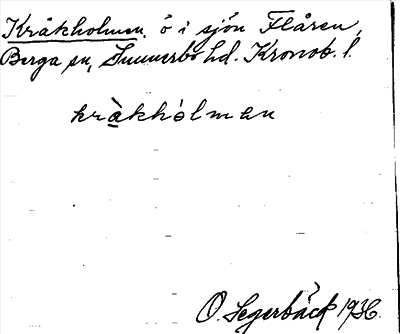 Kråkholmen, ö i sjön Flåren,
Berga sn, Sunnerbo hd. Kronob. l.
kràkhólman
O. Segerbäck 1936.